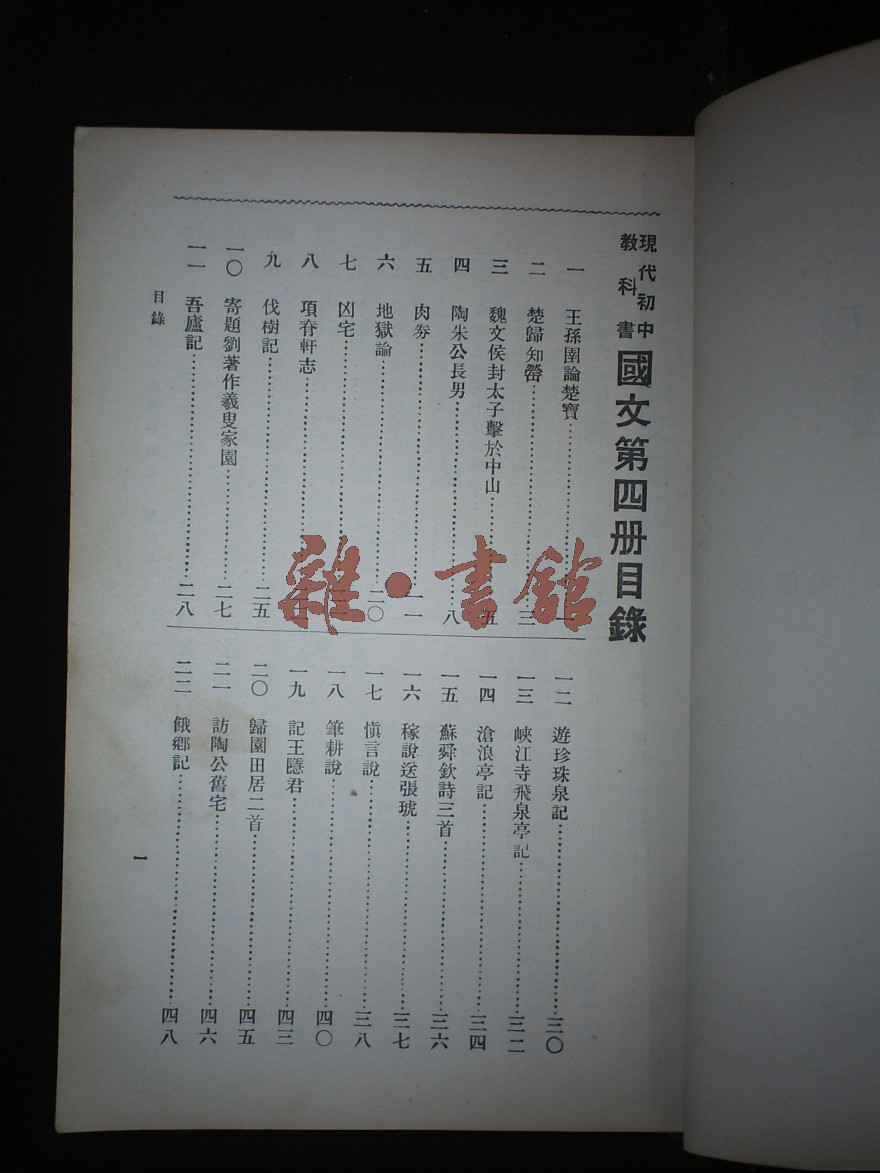 現代初中
教科書
國文第四册目錄
一 王孫圉論楚寶……一
二 楚歸知罃……三
三 魏文侯封太子擊於中山……五
四 陶朱公長男……八
五 肉券……一一
六 地獄論……二〇
七 凶宅……
八 項脊軒志……
九 伐樹記……二五
一〇 寄題劉著作羲叟家園……二七
一一 吾廬記……二八
一二 遊珍珠泉記……三〇
一三 峽江寺飛泉亭記……三二
一四 滄浪亭記……三四
一五 蘇舜欽詩三首……三六
一六 稼說送張琥……三七
一七 愼言說……三八
一八 筆耕說……四〇
一九 記王隱君……四三
二〇 歸園田居二首……四五
二一 訪陶公舊宅……四六
二二 餓鄉記……四八
目錄
一
雜·書館